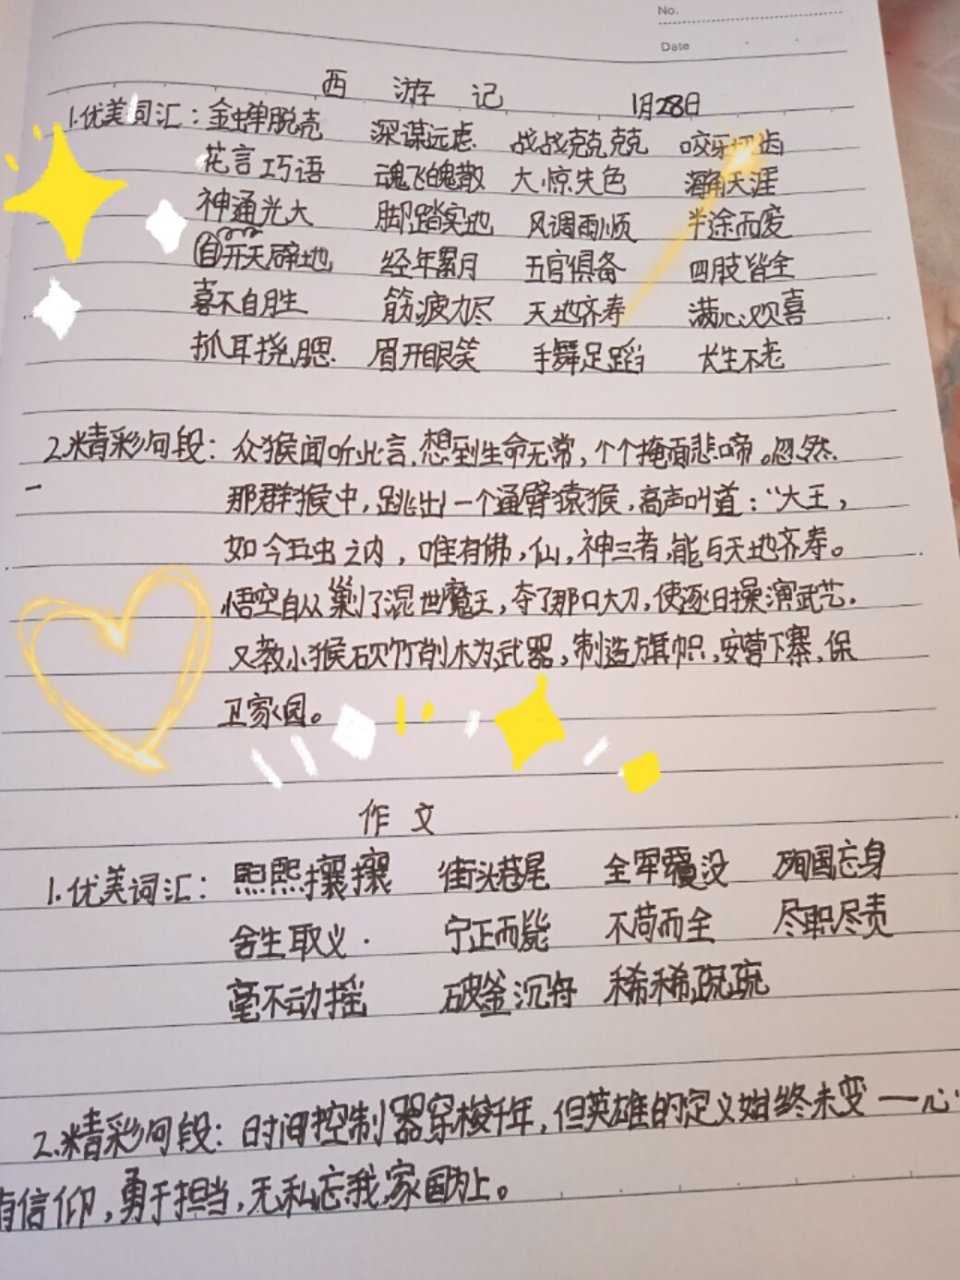 No.
Date
西 游 记 1月28日
1.优美词汇：金蝉脱壳 深谋远虑 战战兢兢 咬牙切齿
花言巧语 魂飞魄散 大惊失色 海角天涯
神通光大 脚踏实地 风调雨顺 半途而废
自开天辟地 经年累月 五官俱备 四肢皆全
喜不自胜 筋疲力尽 天地齐寿 满心欢喜
抓耳挠腮 眉开眼笑 手舞足蹈 长生不老
2.精彩句段：众猴闻听此言，想到生命无常，个个掩面悲啼。忽然
那群猴中，跳出一个通臂猿猴，高声叫道：“大王，
如今五虫之内，唯有佛，仙，神三者，能与天地齐寿。
悟空自从剿了混世魔王，夺了那口大刀，使逐日操演武艺.
又教小猴砍竹削木为武器，制造旗帜，安营下寨，保
卫家园。
作 文
1.优美词汇：熙熙攘攘 街头巷尾 全军覆没 殉国忘身
舍生取义. 宁正而毙 不苟而全 尽职尽责
毫不动摇 破釜沉舟 稀稀疏疏
2.精彩句段：时间控制器穿梭千年，但英雄的定义始终未变 一心
有信仰，勇于担当，无私忘我，家国为上。